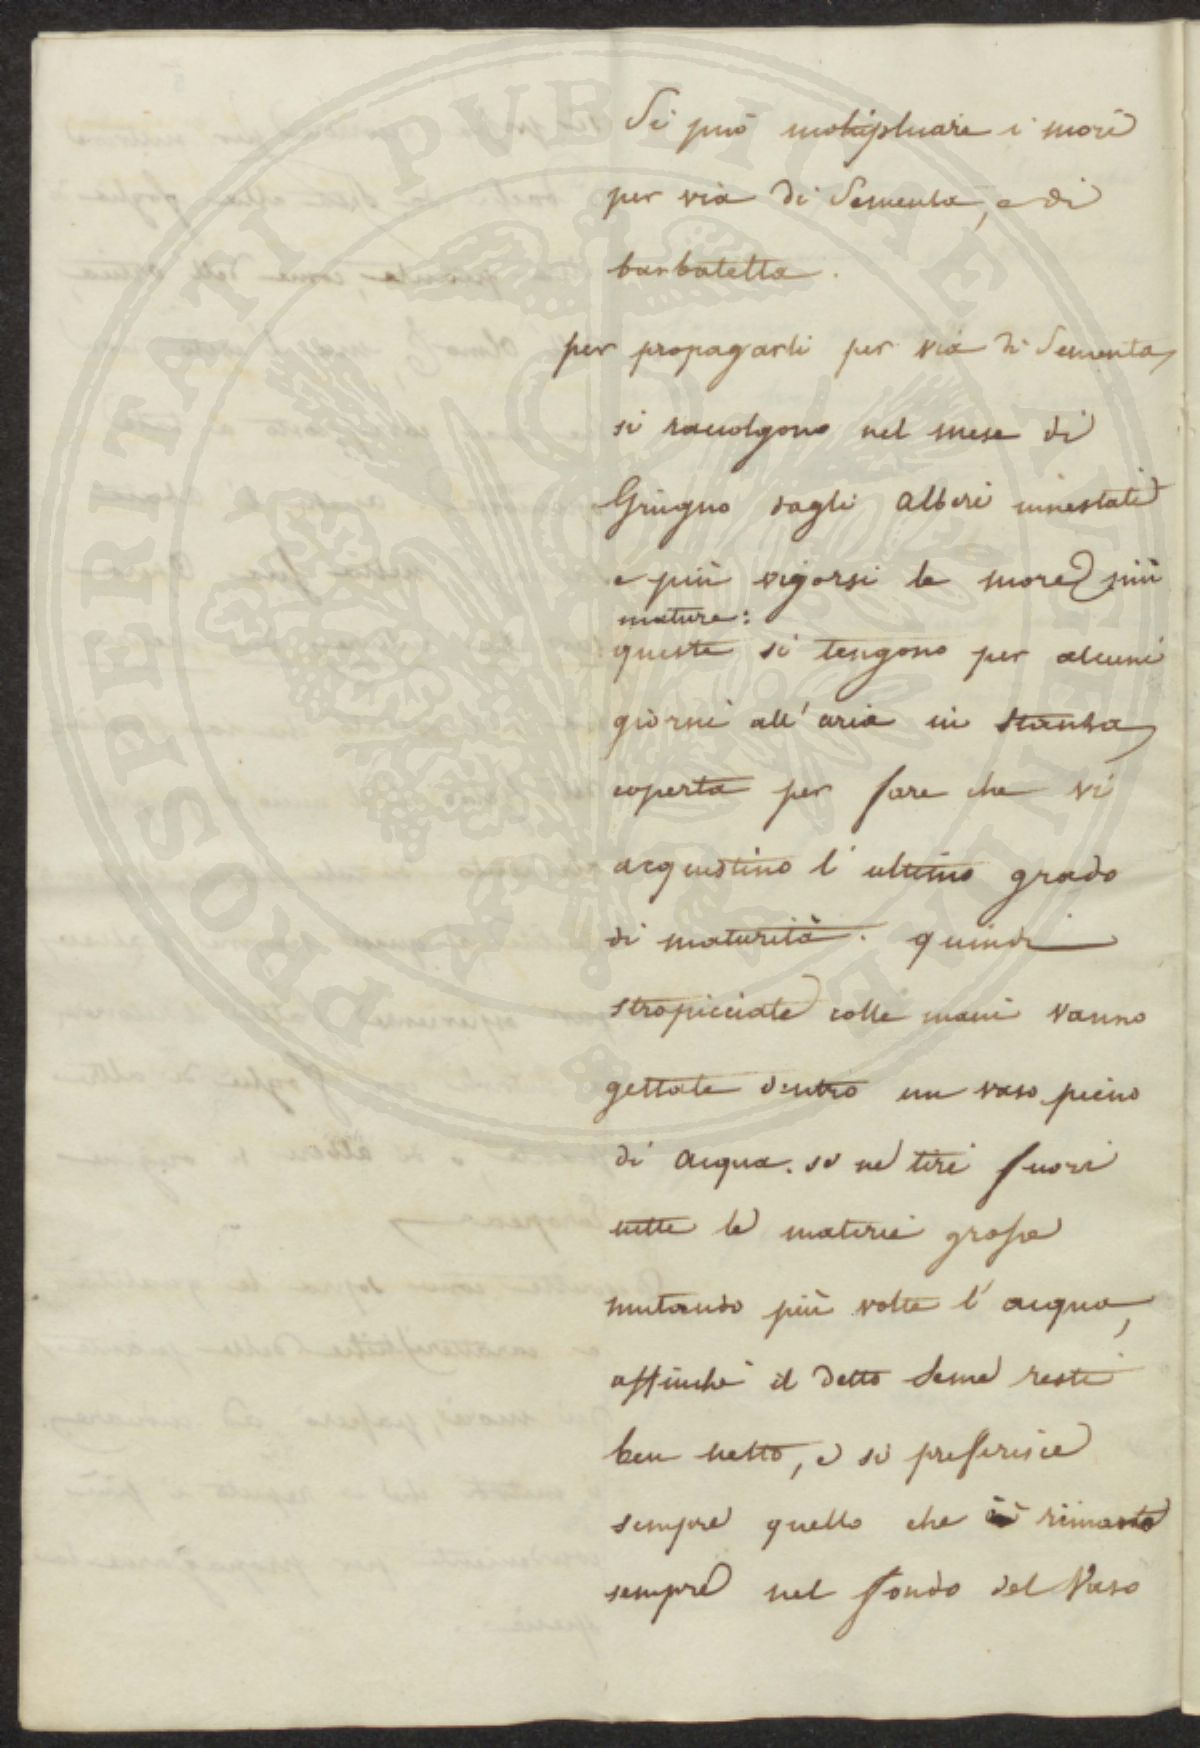 Si può moltiplicare i mori
per via di Sementa, e di
barbatella.
per propagarli per via di Sementa
si raccolgono nel mese di
Giugno dagli Alberi innestati
e più vigorsi le more più
mature:
queste si tengono per alcuni
giorni all'aria in stanza
coperta per fare che vi
acquistino l'ultimo grado
di maturità. quindi
stropicciate colle mani vanno
gettate dentro un vaso pieno
di acqua. si ne tiri fuori
tutte le materie grosse
mutando più volte l'acqua,
affinché il detto seme resti
ben netto, e si preferisce
sempre quello che è rimasto
sempre nel fondo del Vaso
PROSPERITATI PVBLICAE AVGENDAE